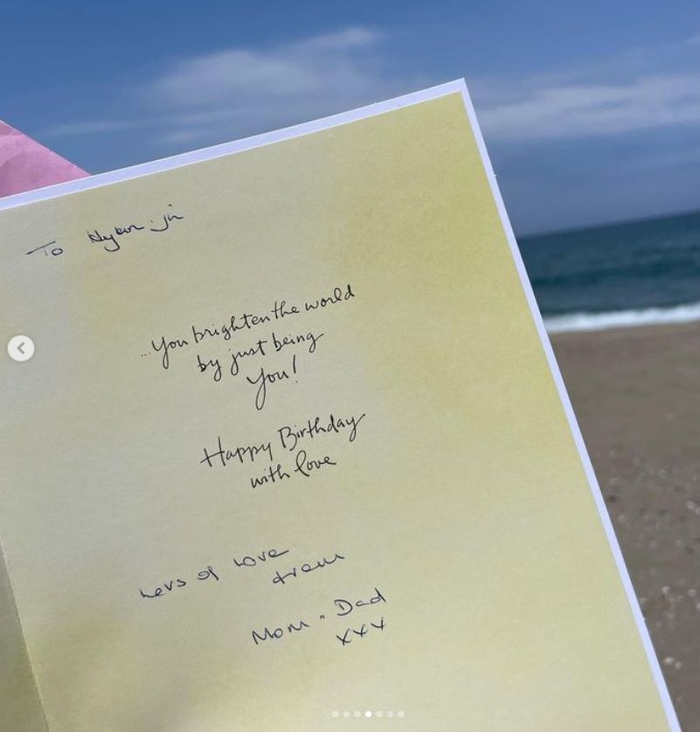 To Hyun-jin
...You brighten the world
by just being
You!
Happy Birthday
with love
of Love
from
Mom. Dad
xxx